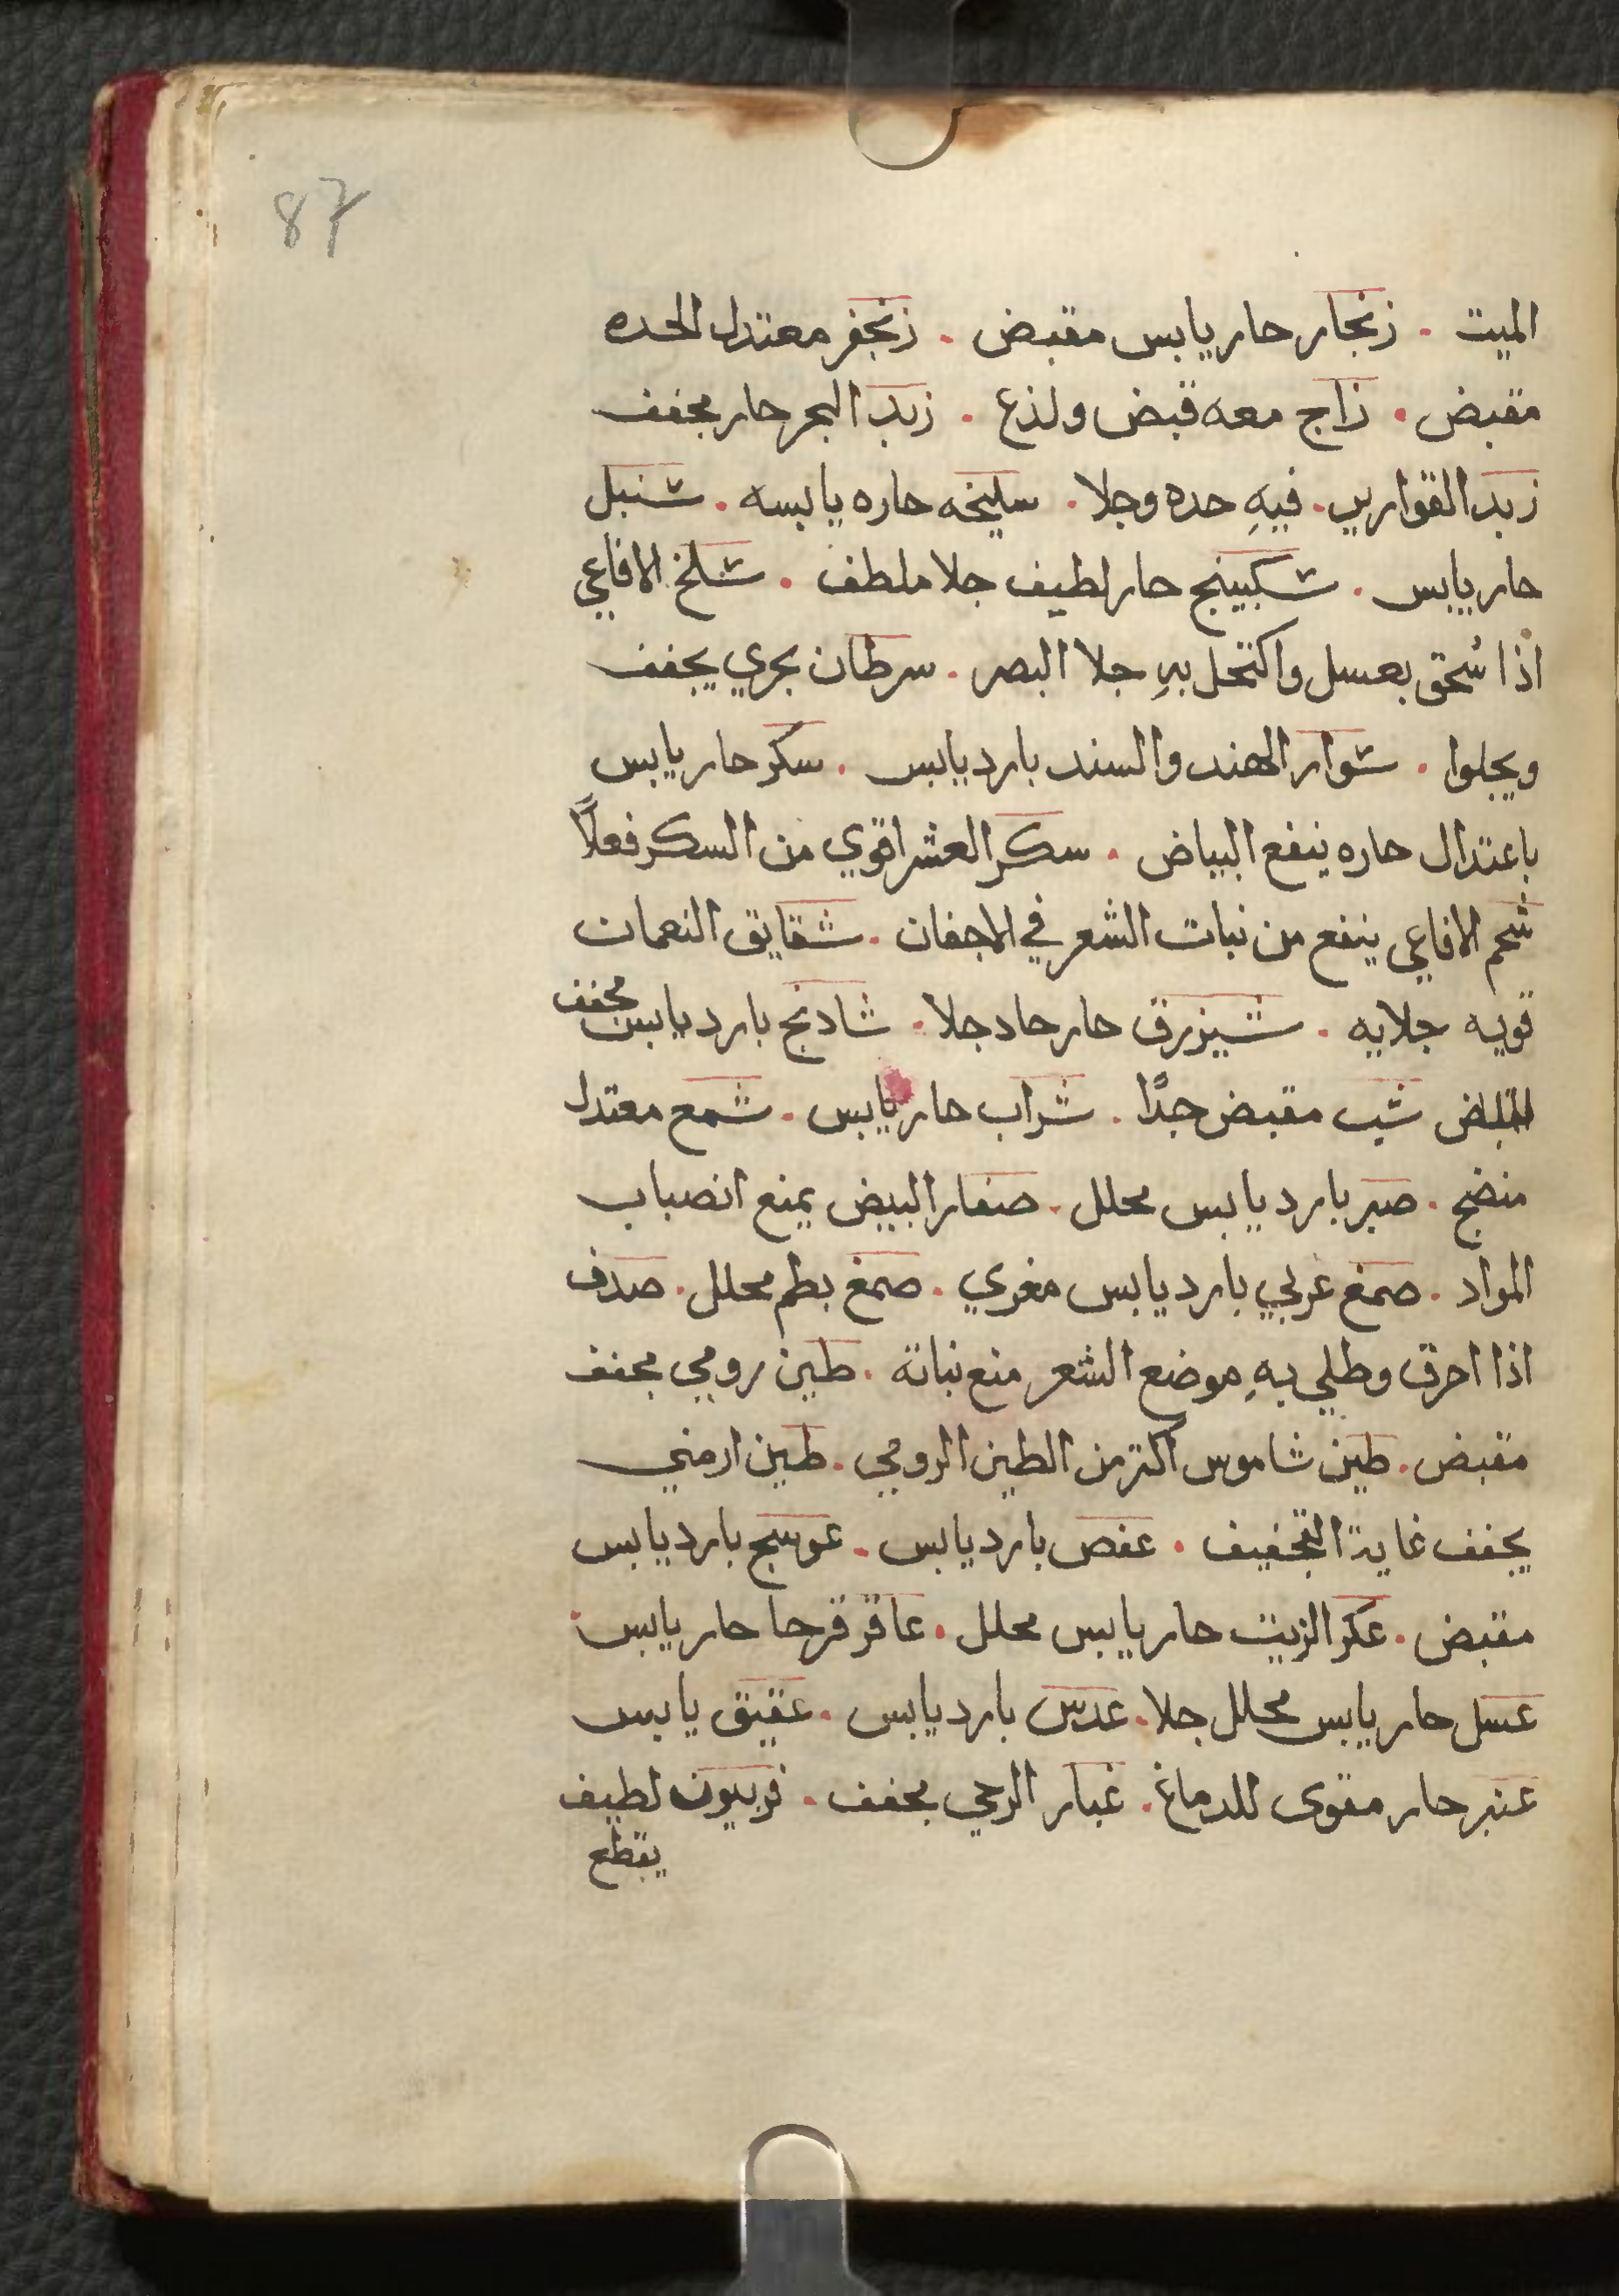 87
الميت . زنجار حار يابس مقبض . زنجفر معتدل الحده
مقبض . زاج معه قبض ولذع . زبد البحر حار مجفف
زبد القوارير . فيهِ حده وجلا . سليخه حاره يابسه . سنبل
حار يابس . سكبينج حار لطيف جلا ملطف . سلخ الافاعي
اذا سُحق بعسل واكتحل بهِ جلا البصر . سرطان بحري يجفف
ويجلوا . سوار الهند والسند بارد يابس . سكر حار يابس
باعتدال حاره ينفع البياض . سكر العشر اقوي من السكر فعلاً
شحم الافاعي ينفع من نبات الشعر في الاجفان . شقايق النعمان
قويه جلايه . شيزرق حار حاد جلا . شادنج بارد يابس مجفف
شب مقبض جدًا . شراب حار يابس . شمع معتدل
منضج . صبر بارد يابس محلل . صفار البيض يمنع انصباب
المواد . صمغ عربي بارد يابس مغري . صمغ بطم محلل . صدف
اذا احرق وطلي بهِ موضع الشعر منع نباته . طين رومي مجفف
مقبض . طين شاموس اكثر من الطين الرومي . طين ارمني
يجفف غاية التجفيف . عفص بارد يابس . عوسج بارد يابس
مقبض . عكر الزيت حار يابس محلل . عاقر قرحا حار يابس .
عسل حار يابس محلل جلا . عدس بارد يابس . عقيق يابس
عنبر حار مقوى للدماغ . غبار الرحي مجفف . فربيون لطيف
يقطع